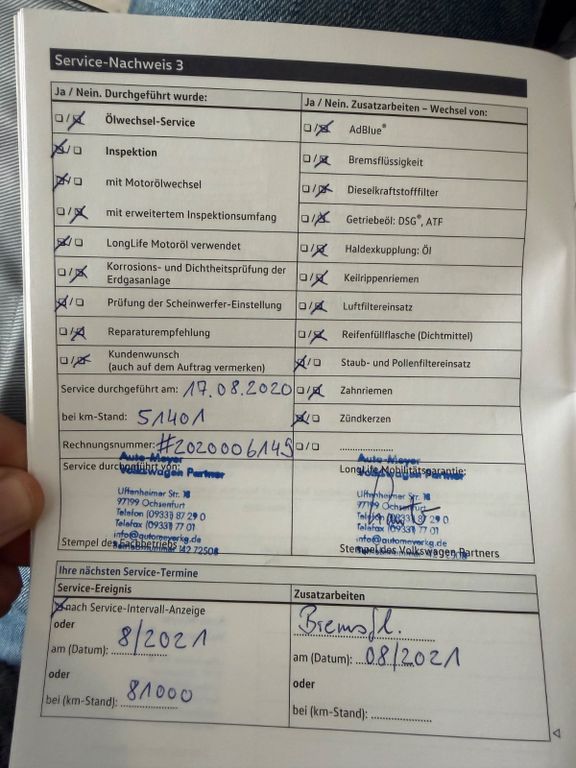 Service-Nachweis 3
Ja / Nein. Durchgeführt wurde:
Ölwechsel-Service
Inspektion
mit Motorölwechsel
mit erweitertem Inspektionsumfang
LongLife Motoröl verwendet
Korrosions- und Dichtheitsprüfung der
Erdgasanlage
Prüfung der Scheinwerfer-Einstellung
Reparaturempfehlung
Kundenwunsch
(auch auf dem Auftrag vermerken)
Service durchgeführt am: 17.08.2020
bei km-Stand: 51401
Rechnungsnummer: #2020006145
Service durchgeführt von:
Auto-Meyer
Volkswagen Partner
Uffenheimer Str. 18
97199 Ochsenfurt
Telefon (0933) 87 29 0
Telefax (0933) 77 01
info@automeyerkg.de
Stempel des Fachbetriebs
Ja / Nein. Zusatzarbeiten – Wechsel von:
AdBlue®
Bremsflüssigkeit
Dieselkraftstofffilter
Getriebeöl: DSG®, ATF
Haldexkupplung: Öl
Keilrippenriemen
Luftfiltereinsatz
Reifenfüllflasche (Dichtmittel)
Staub- und Pollenfiltereinsatz
Zahnriemen
Zündkerzen
LongLife Mobilitätsgarantie:
Auto-Meyer
Volkswagen Partner
Uffenheimer Str. 18
97199 Ochsenfurt
Telefon (0933) 87 29 0
Telefax (0933) 77 01
info@automeyerkg.de
Stempel des Volkswagen Partners
Ihre nächsten Service-Termine
Service-Ereignis
nach Service-Intervall-Anzeige
oder
am (Datum): 8/2021
oder
bei (km-Stand): 81000
Zusatzarbeiten
Bremsfl.
am (Datum): 08/2021
oder
bei (km-Stand):